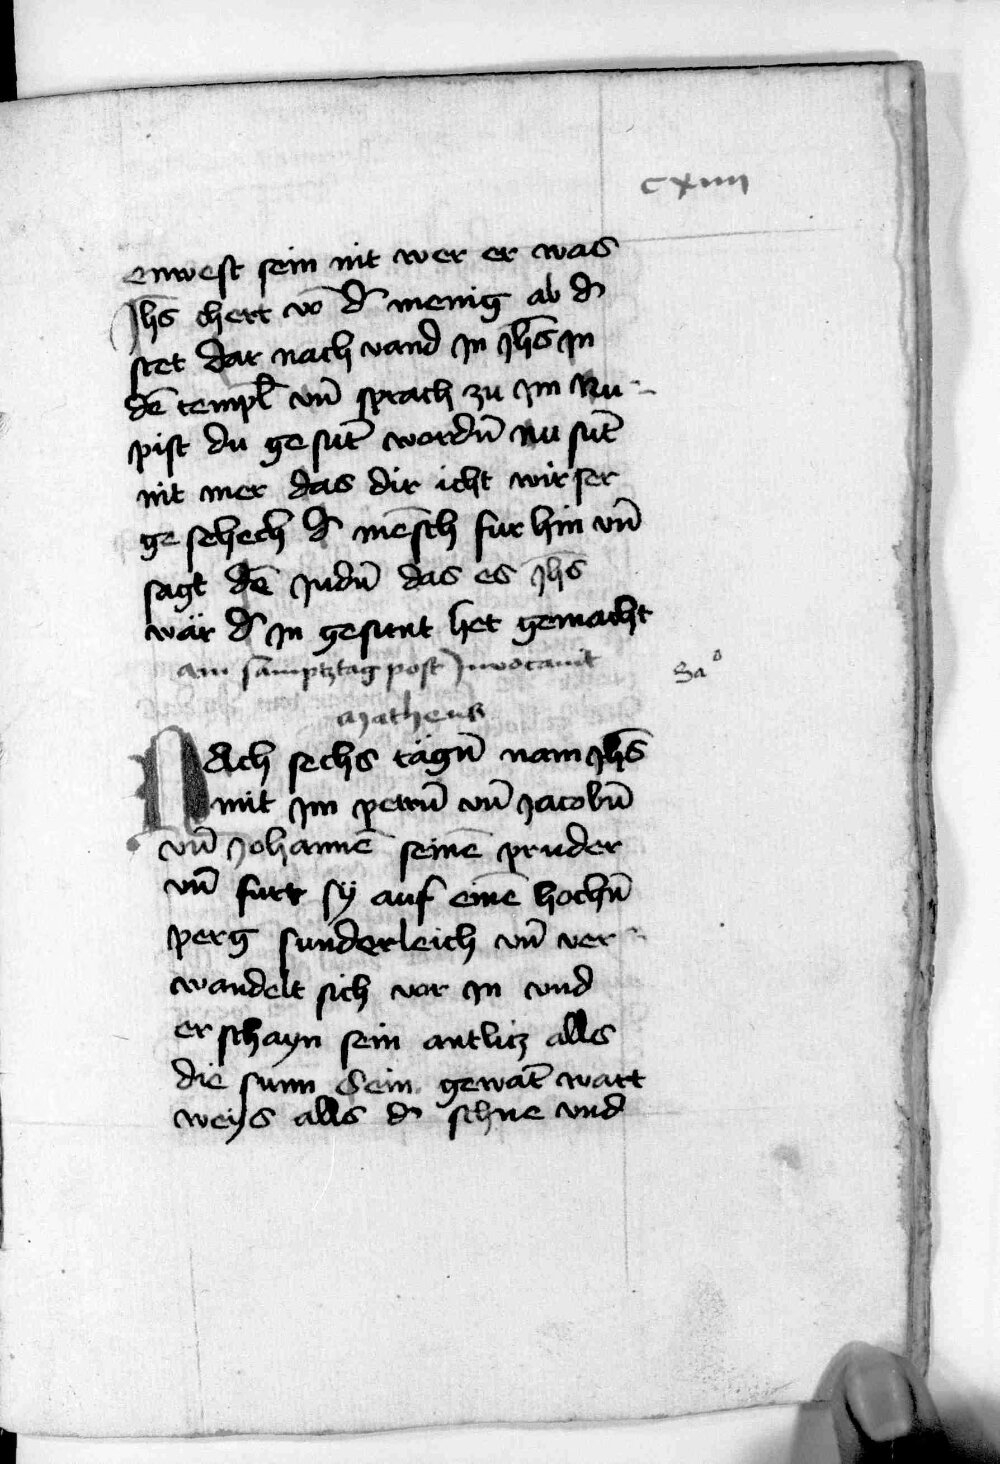 cxiiii
enwest sein nit wer er was
Jhs chert vō d' menig ab d'
stet dar nach vand jn jhs jn
dē templ vn̄ sprach zu jm Nu
pist du gesūt wordn̄ nu sūt
nit mer das dir icht wirser
geschech d' mēsch fur hin vn̄
sagt dē judn̄ das es jhs
wär d' jn gesunt het gemacht
am samptztag post Jnvocauit
Sa°
Matheus
NAch sechs tägn̄ nam jhs
mit jm petrū vn̄ jacobū
vn̄ Johannē seinē pruder
vn̄ furt sÿ auf einē hochn̄
perg sunderleich vn̄ ver
wandelt sich vor jn vnd
erschayn sein antlicz alls
die sunn Sein gewāt wart
weys alls d' schne vnd